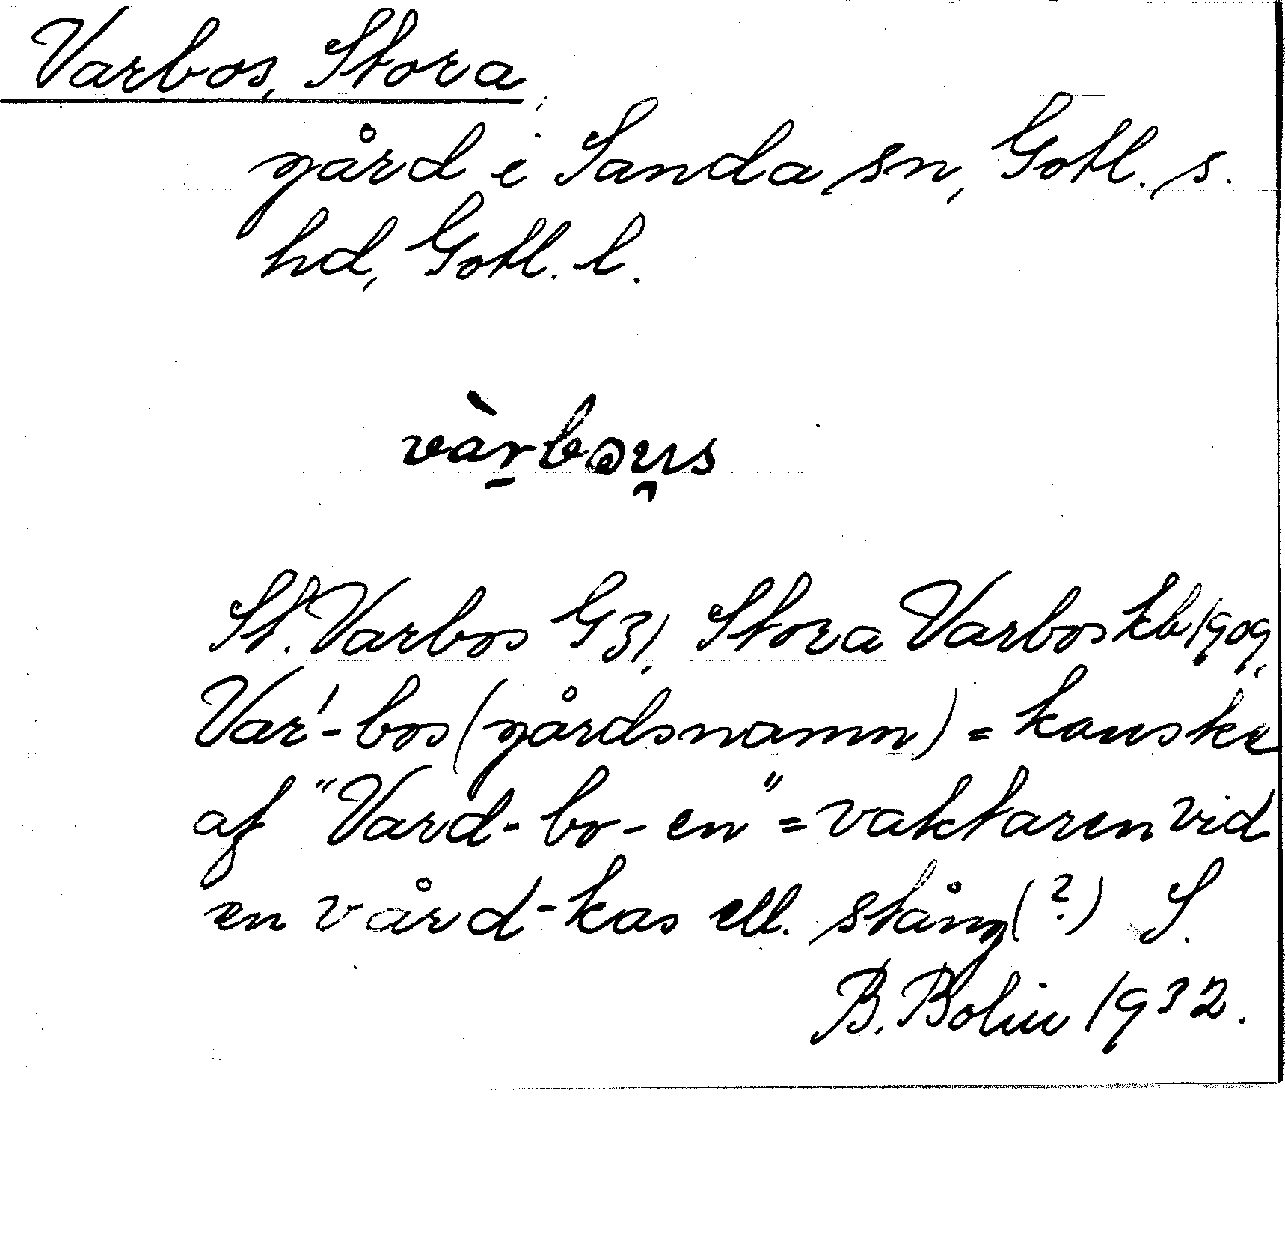 Varbos, Stora
gård i Sanda sn, Gotl. s.
hd, Gotl. l.
vàr̠bəu̯s
St. Varbos G31, Stora Varbos kb 1909,
Var'-bos (gårdsnamn) = kanske
af "Vard-bo-en" = vaktaren vid
en vård-kas ell. stång (?) S.
B. Bolin 1932.